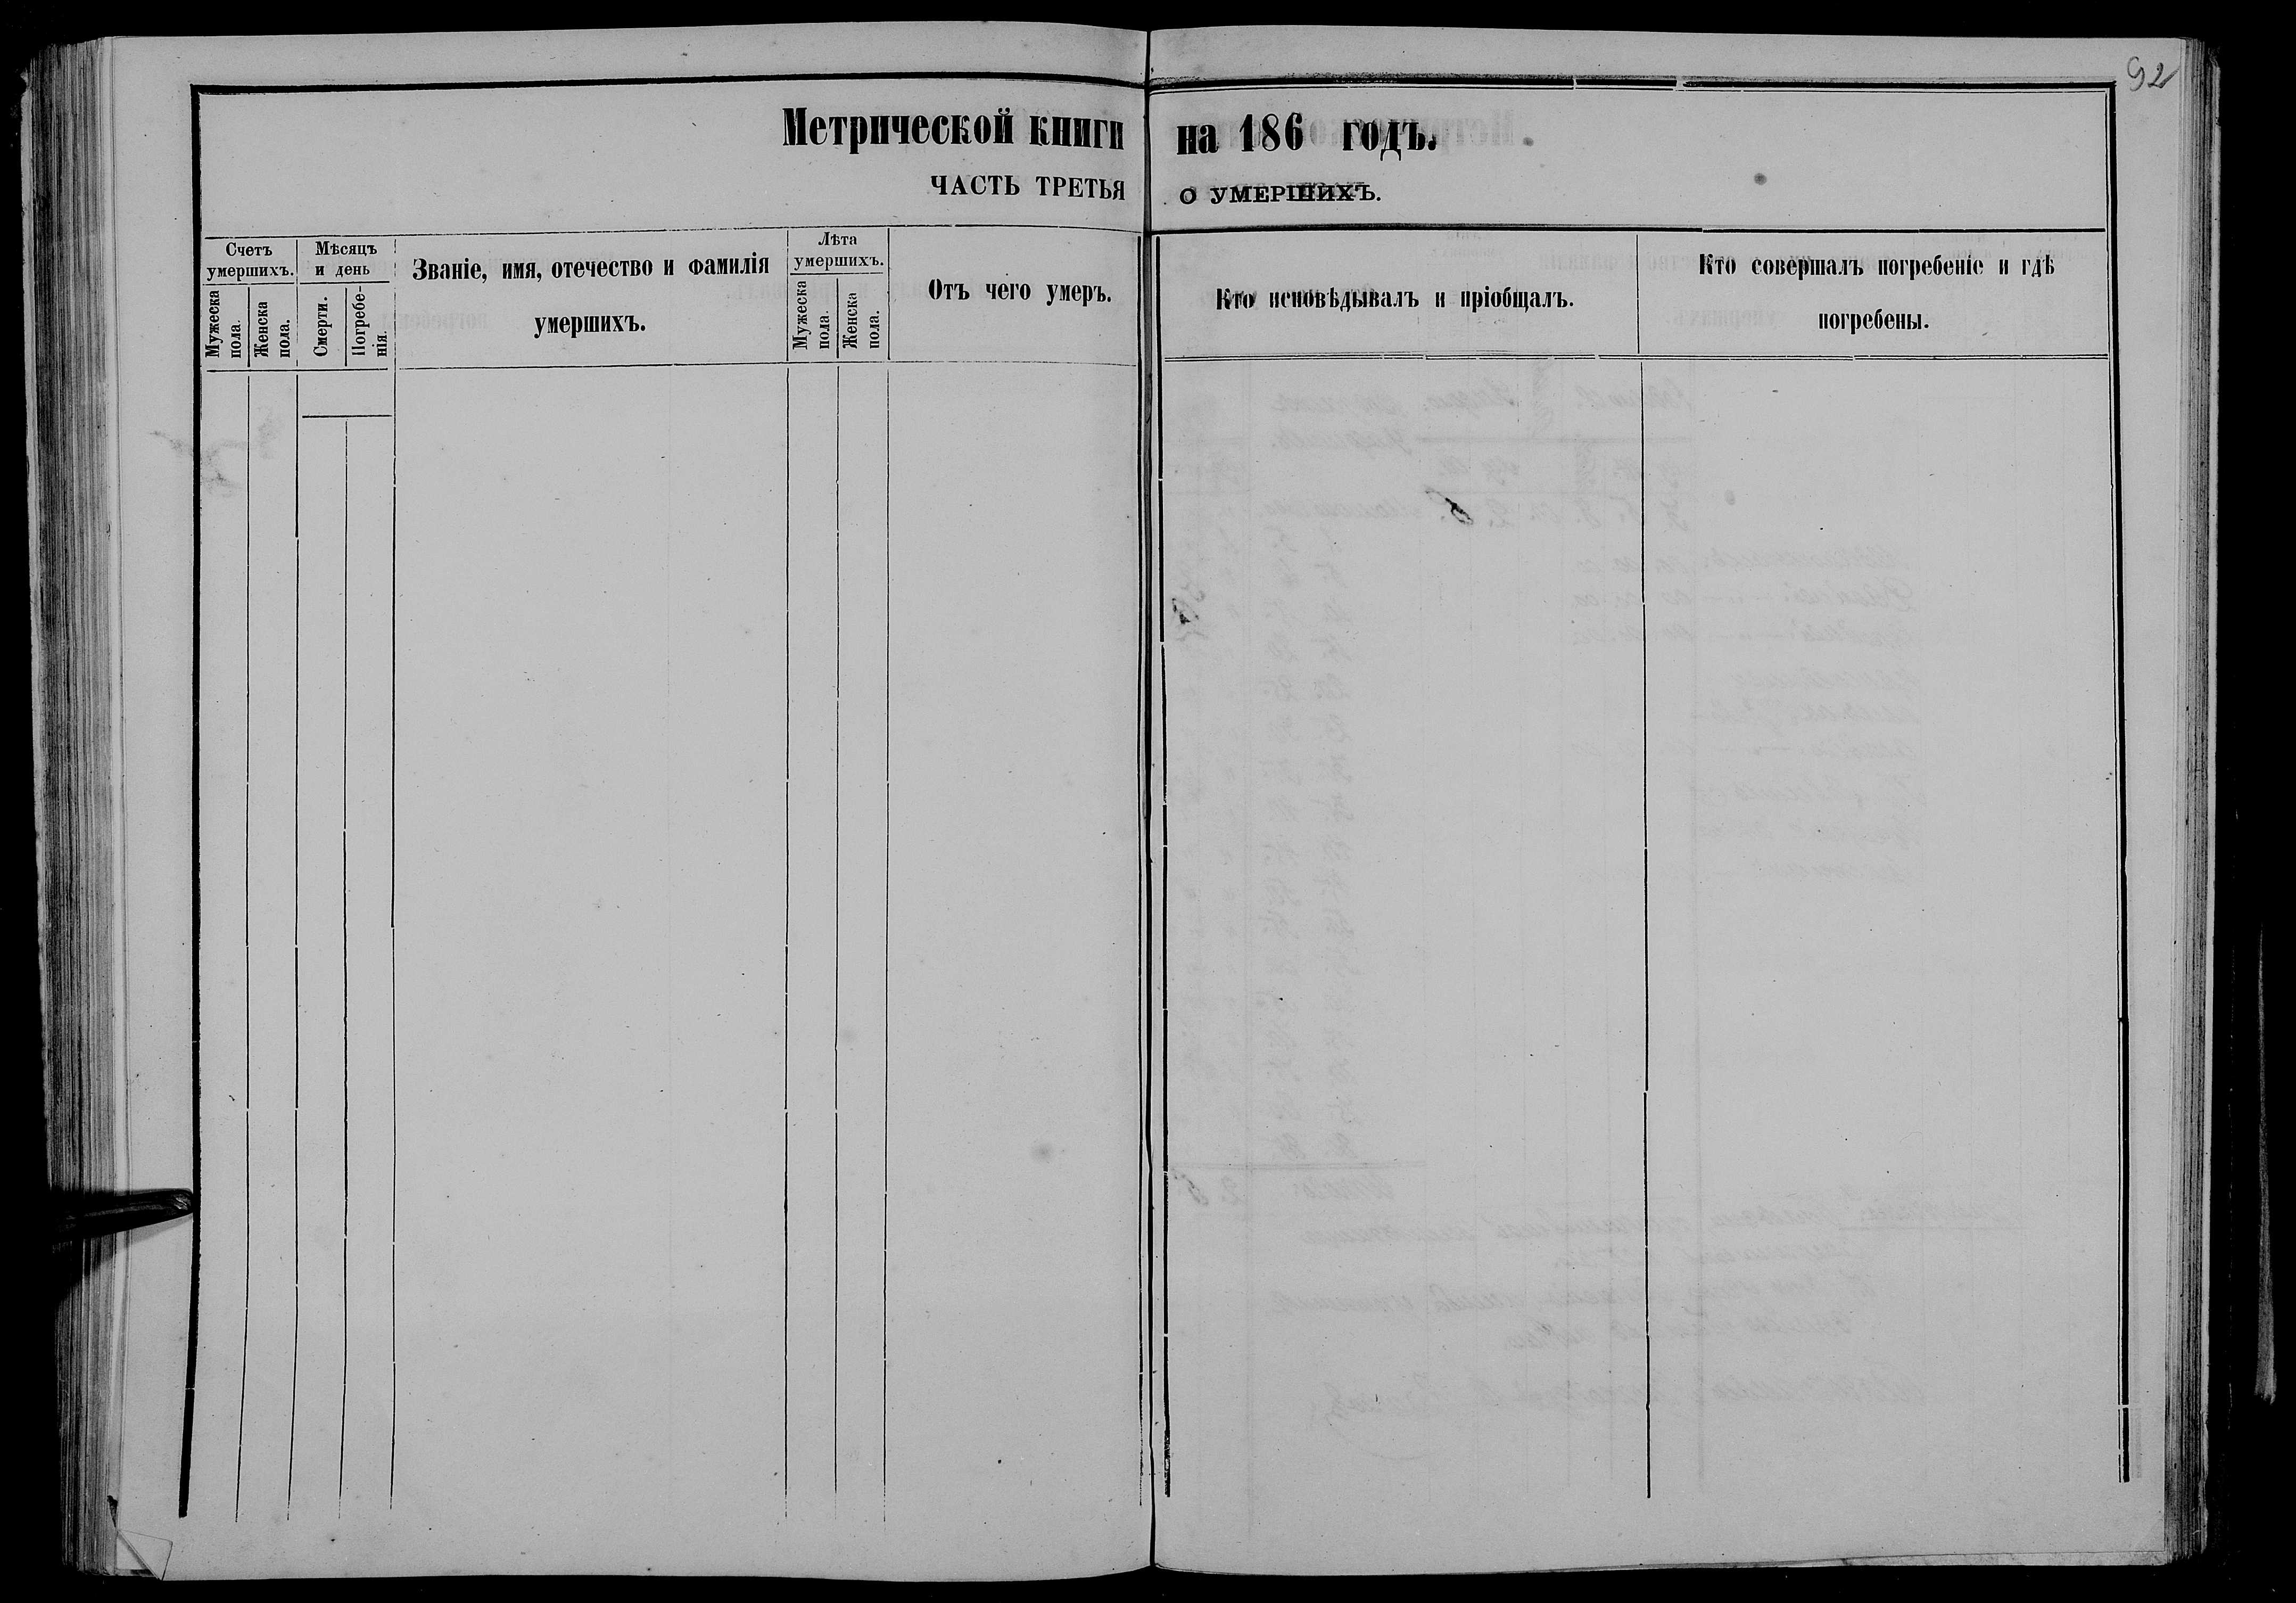 92
Метрической книги на 186 годъ.
ЧАСТЬ ТРЕТЬЯ О УМЕРШИХЪ.
Счетъ
умершихъ.
Мужеска
пола.
Женска
пола.
Мѣсяцъ
и день
Смерти.
Погребе-
нія.
Званіе, имя, отечество и фамилія
умершихъ.
Лѣта
умершихъ.
Мужеска
пола.
Женска
пола.
Отъ чего умеръ.
Кто исповѣдывалъ и пріобщалъ.
Кто совершалъ погребеніе и гдѣ
погребены.